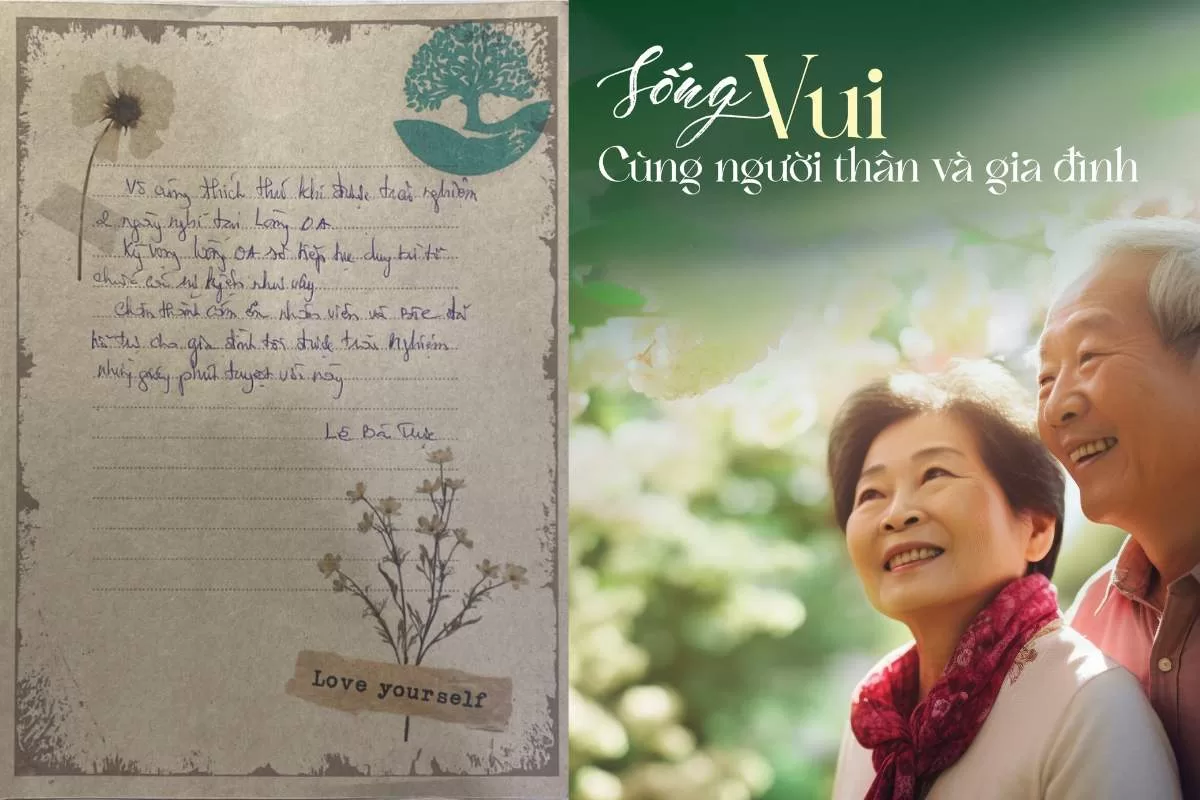 Vô cùng thích thú khi được trải nghiệm
2 ngày nghỉ tại Làng OA
Kỳ vọng Làng OA sẽ tiếp tục duy trì tổ
chức các sự kiện như vậy
Chân thành cảm ơn nhân viên và đã
hỗ trợ cho gia đình tôi được trải nghiệm
những giây phút tuyệt vời này
Lê Bá
Love yourself
Sống Vui
Cùng người thân và gia đình